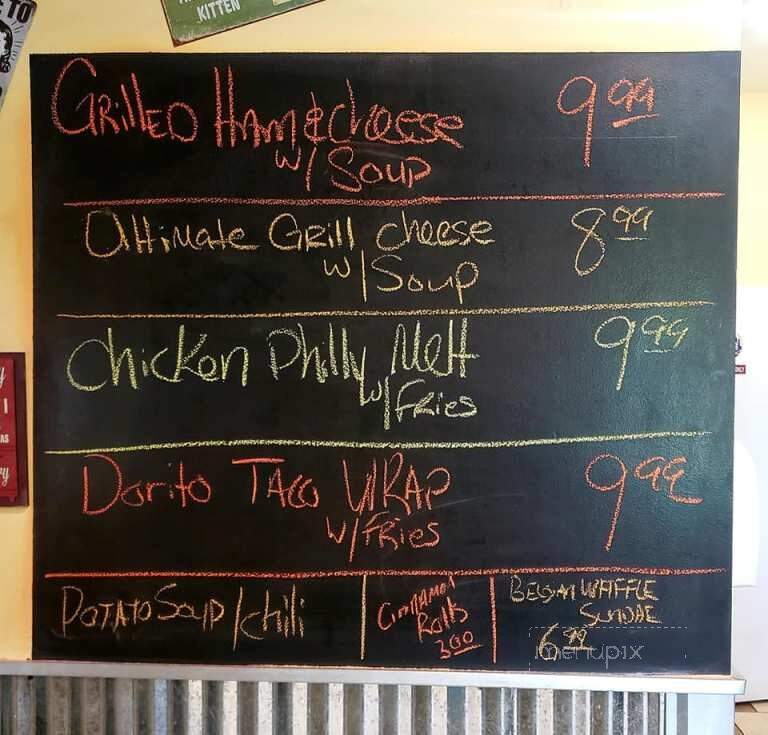 KITTEN
GRillED HAm & cheese 9.99
w/ Soup
Ultimate Grill cheese 8.99
w/ Soup
Chicken Philly Melt 9.99
w/ FRies
Dorito TAco WRAP 9.99
w/ FRies
POTATO Soup / chili
Cinnamon
Rolls
3.00
BElgian WAFFLE
SUNDAE
6.99
menupix